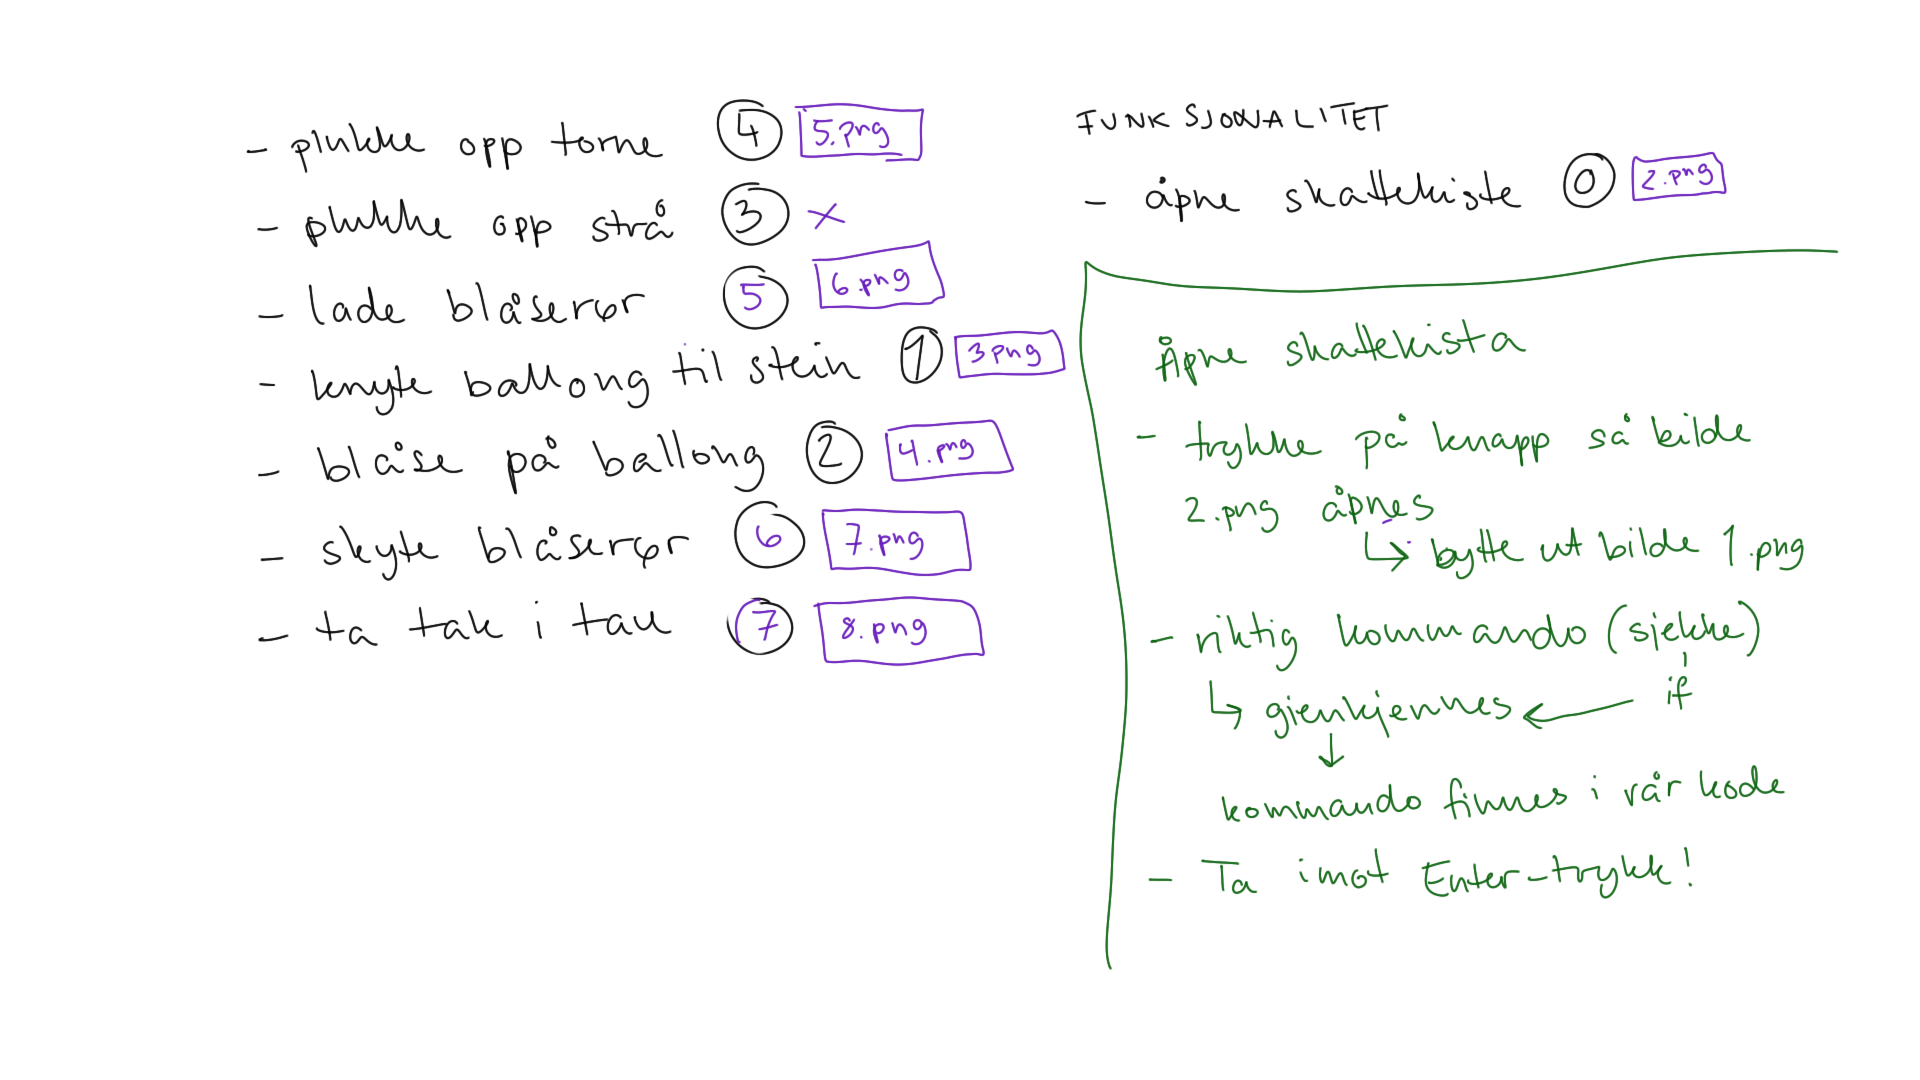 - plukke opp torne 4 5.png
- plukke opp strå 3 x
- lade blåserør 5 6.png
- knyte ballong til stein 1 3png
- blåse på ballong 2 4.png
- skyte blåserør 6 7.png
- ta tak i tau 7 8.png
FUNKSJONALITET
- åpne skattekiste 0 2.png
Åpne skattekista
- trykke på knapp så bilde
2.png åpnes
↳ bytte ut bilde 1.png
- riktig kommando (sjekke)
if
↳ gjenkjennes ←
↓
kommando finnes i vår kode
- Ta imot Enter-trykk!